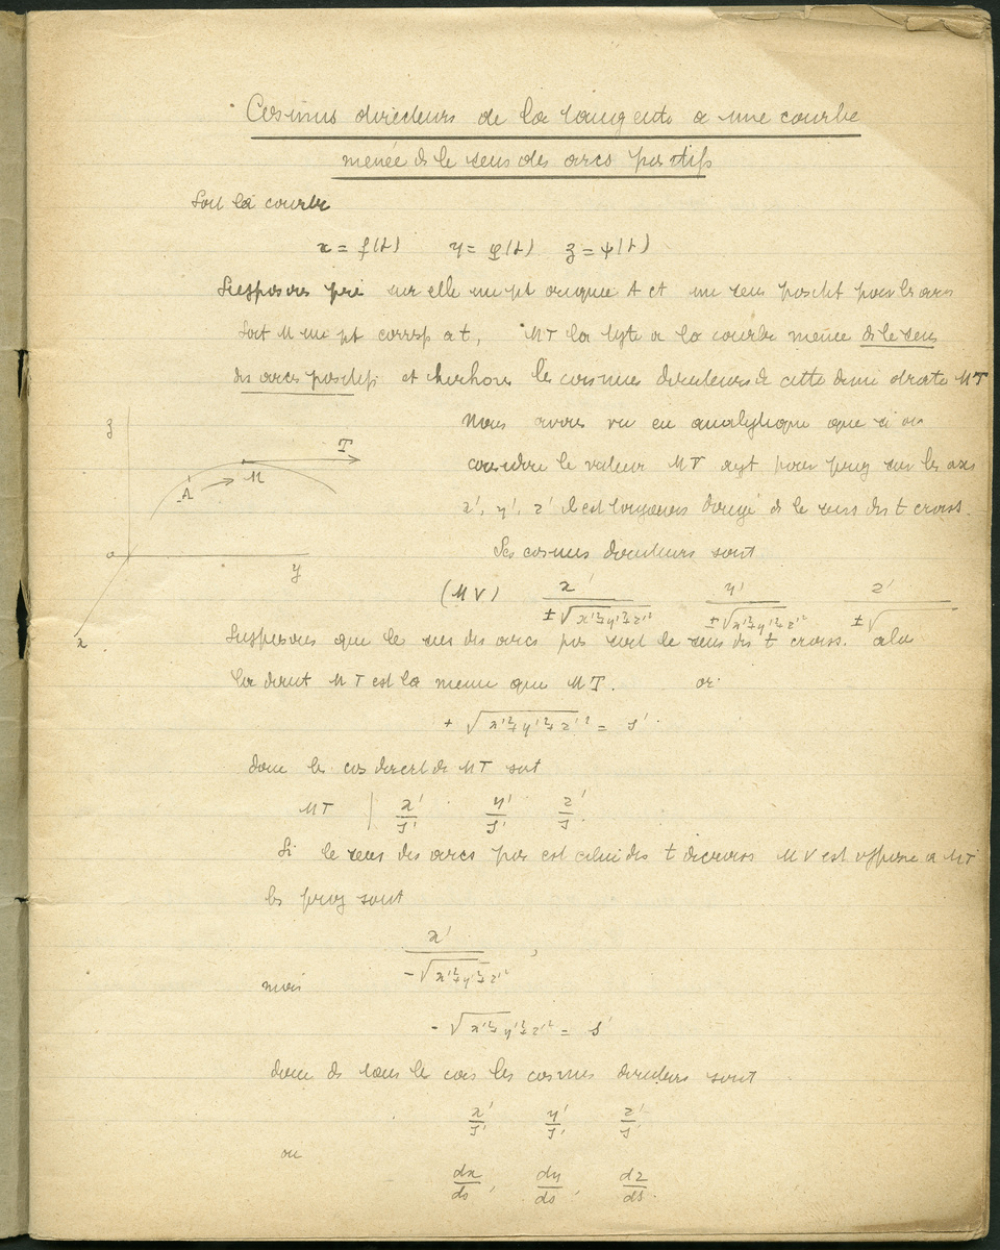 Cosinus directeurs de la tangente a une courbe
menée ds le sens des arcs positifs
Soit la courbe
x = f(t) y = φ(t) z = ψ(t)
Supposons pris sur elle un pt origine A et un sens positif pour les arcs
Soit M un pt corresp a t, MT la tgte a la courbe menée ds le sens
des arcs positifs et cherchons les cosinus directeurs de cette demi droite MT
z
T
A
M
o
y
x
Nous avons vu en analytique que si on
considère le valeur MV ayt pour proj sur les axes
x', y', z' il est toujours dirigé ds le sens des t croiss.
Ses cosinus directeurs sont
(MV) x'/±√x'²+y'²+z'² y'/±√x'²+y'²+z'² z'/±√
Supposons que le sens des arcs pos soit le sens des t croiss. alors
la direct MT est la meme que MT. or
+ √x'²+y'²+z'² = s'
donc les cos direct de MT sont
MT | x'/s' y'/s' z'/s'
Si le sens des arcs pos est celui des t decroiss MV est opposé a MT
les proj sont
x'/-√x'²+y'²+z'² ,
mais
- √x'²+y'²+z'² = s'
donc ds tous le cas les cosinus directeurs sont
x'/s' y'/s' z'/s'
ou
dx/ds, dy/ds, dz/ds.